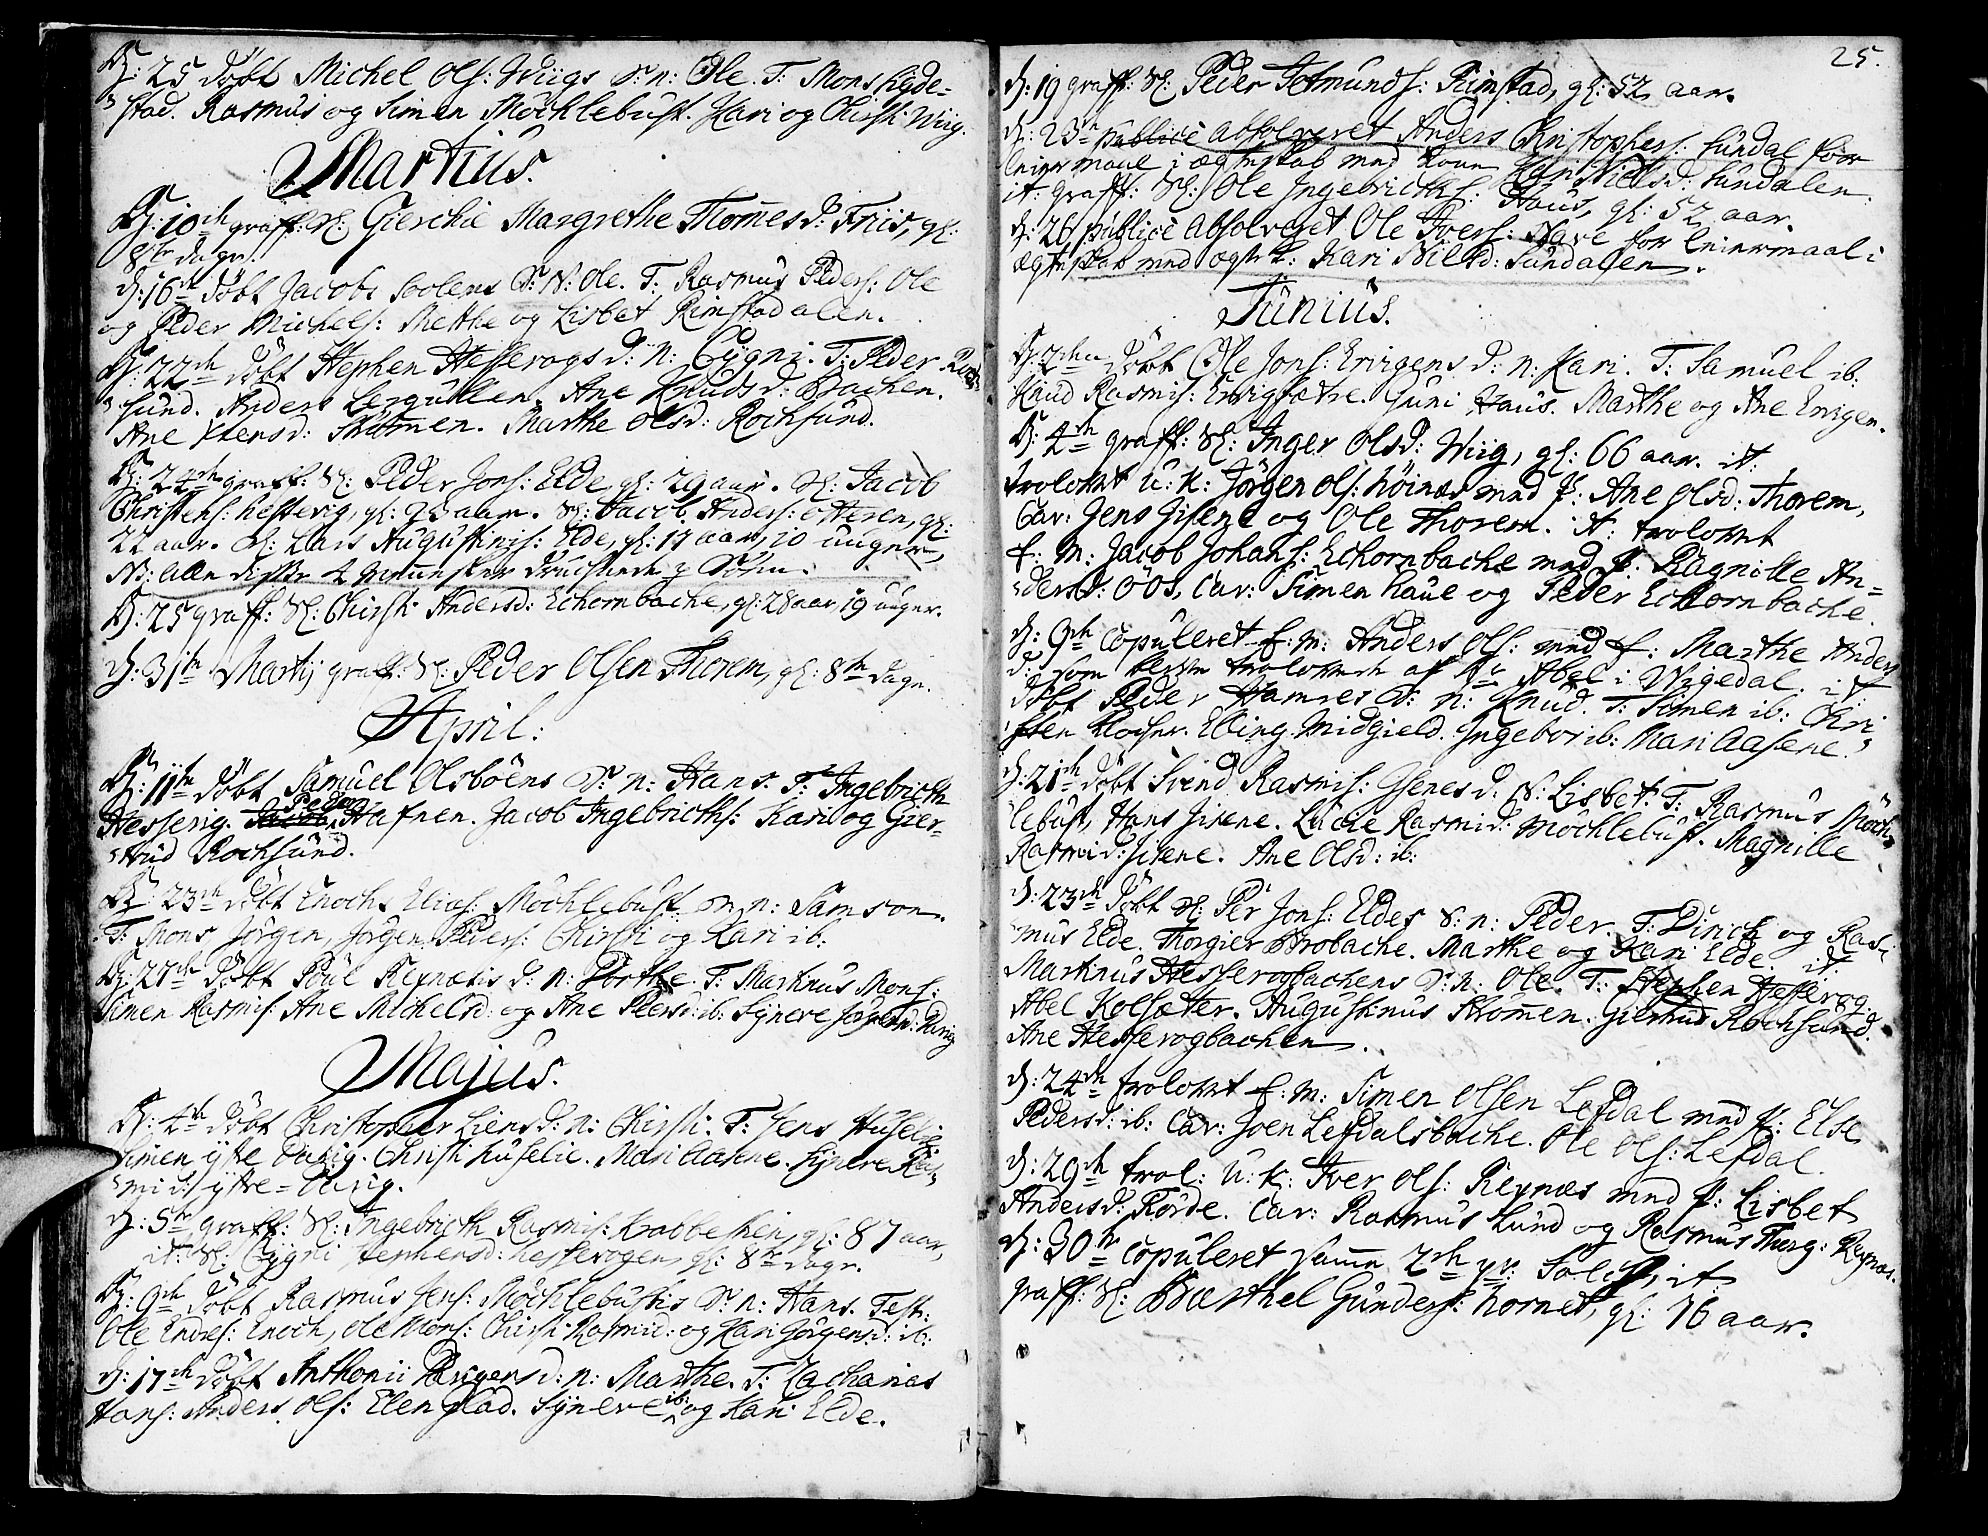 D: 25 döbt Michel Ols: Wiigs S: n: Ole. T: Mons Hyde=
stad. Rasmus og Simen Möchlebust. Kari og Chirsti Wiig.
Martius.
D: 10de graff: Sl: Gierchie Margrethe Thommesd: Friis, gl:
8te dage.
D: 16de döbt Jacobs S: N: Ole. T: Rasmus Peders: Ole
og Peder Michels: Methe og Lisbet Rimstadalen.
D: 22de döbt Stephen Hessevogs D: n: Cygni. T: Peder Roch
sund. Anders Legullen. Ane Knudsd: Bachen.
Ane Strömen. Marthe Olsd: Rochsund.
D: 24de graff: Sl: Peder Jons: Elde, gl: 29 aar. Sl: Jacob
Christens: Hessevig, gl: 23 aar. Sl: Jacob Anders: Otteren, gl:
22 aar. Sl: Lars Augustinis: Elde, gl: 17 aar, 20 uuger,
NB: Alle disse 4 druchnede Söen.
D: 25 graff: Sl: Chirsti Andersd: Echornbache, gl: 28 aar, 19 uuger.
D: 31te Martij graff: Sl: Peder Olsen Thorem, gl: 8te dage.
April:
D: 11te döbt Samuel Olsböens S: n: Hans. T: Ingebricth
Hessevig. Peder Hafnen. Jacob Ingebricths: Kari og Gier=
trud Rochsund.
D: 23de döbt Enochs Elias: Möchlebust S: n: Samson.
T: Mons Jörgen, Jörgen Peders: Chirsti og Kari ib:
D: 27de döbt Poul Reynæsis D: n: Dorthe. T: Martinus Mons:
Simen Rasmis: Ane Michelsd: og Ane Peersd: ib: Synere
Majus.
D: 4de döbt Christopher Liens D: n: Chirsti. T: Jens Huselie
Simen ytre Davig. Chirsti Huselie. Mari Aasene. Synere Ras
mid: ytre=Davig.
D: 5te graff: Sl: Ingebricth Rasmis: Krabbestien, gl: 87 aar,
it: Sl: Cygni Hessevogen, gl: 8te dage.
D: 9de döbt Rasmus Jens: Möchlebustis S: n: Hans. Test:
Ole Endres: Enoch, Ole Mons: Chirsti Rasmid: og Kari Jörgensd: ib:
D: 17de döbt Anthonii D: n: Marthe. T: Zacharias
Hans: Anders Ols: Elen Glad. Synere ib: og Kari Elde.
25.
D: 19 graff: Sl: Peder Rimstad, gl: 52 aar.
D: 23de publicè absolveret Anders Christophers: Sundal for
leiermaal i ægteskab med Kari Nielsd: Sundalen.
it: graff: Sl: Ole Ingebricths: Haus, gl: 52 aar.
D: 26 publicè absolveret Ole Ivers: Nave for leiermaal i
ægteskab med Kari Nielsd: Sundalen.
Junius.
D: 2den döbt Ole Jons: Ervigens D: n: Kari. T: Samuel ib:
Knud Rasmis: Guri Haus. Marthe og Ane Ervigen.
D: 4de graff: Sl: Inger Olsd: Wiig, gl: 66 aar. it:
trolovet U: K: Jörgen Ols: Höinæs med P: Ane Olsd: Thorem,
Cav: Jens Jisene og Ole Thorem. it: trolovet
E: M: Jacob Johans: Echornbache med P: Ragnille An=
dersd: Oos, Cav: Simen Haue og Peder Echornbache.
D: 9de copuleret E: M: Anders Ols: med E: Marthe Anders
D: som trolovede af Hr Abel i Wigedal. it
döbt Peder Hamres S: n: Knud. T: Simen ib: Chri
sten Elling Midgield. Ingebor ib: Mari Aasene.
D: 21de döbt Svend Rasmis: D: N: Lisbet. T: Rasmus Möch
lebust, Hans Jisene. Lucie Rasmid: Möchlebust. Magnille
Rasmid: Jisene. Ane Olsd: ib:
D: 23de döbt Sl: Per Jons: Eldes S: n: Peder. T: Dirich og Ras=
mus Elde. Thorgier Brobache. Marthe og Kari Elde. it
Martinus Hessevogbachens S: N: Ole. T: Stephen Hessevog
Abel Kolsæter. Augustinus Strömen. Giertrud Rochsund.
Ane Hessevogbachen.
D: 24de trolovet E: M: Simen Olsen Lefdal med P: Else
Pedersd: ib: Cav: Joen Lefdalsbache. Ole Ols: Lefdal.
D: 29de trol: U: K: Iver Ols: Reynæs med P: Lisbet
Andersd: Förde. Cav: Rasmus Lund og Rasmus Reynæs.
D: 30te copuleret 2de it
graff: Sl: Barthel Gunders: Hornet, gl: 76 aar.